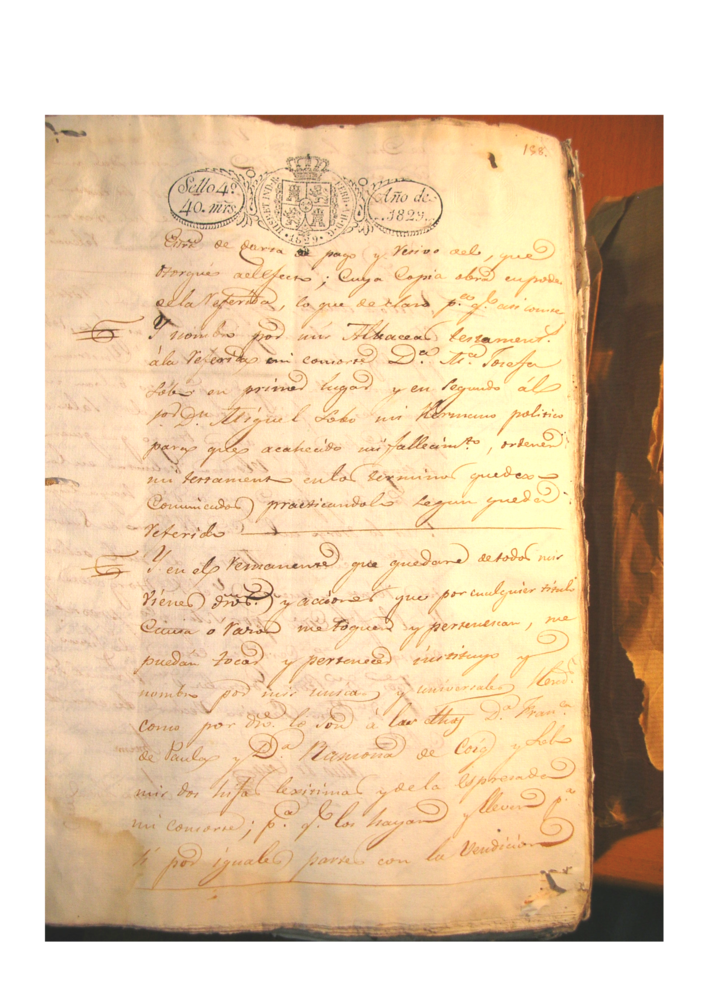 188.
Sello 4º
40. mrs.
HISP. ET IND. R. FERD. VII. D. G. 1829.
Año de
1829.
de carta de pago y resivo del, que
otorgué al efecto; cuya copia obra en poder
de la referida, lo que declaro pª qº asi conste
Y nombro por mis Albaceas testament.
á la referida mi consorte Dª Mª Josefa
Lobo en primer lugar y en segundo ál
Sor Dn Miguel Lobo mi Hermano politico
para que acahecido mi fallecimto, ordenen
mi testament en los terminos que dexo
Comunicados practicandolo segun queda
referido
Y en el remanente que quedare de todos mis
vienes dros. y acciones que por cualquier titulo
Causa o razon me toquen y pertenescan, me
puedan tocar y pertenecer instituyo y
nombro por mis unicas y universales Hered.
como por dro. lo son á las Dª Franca
de Paula y Dª Ramona de Coig y Lobo
mis dos hijas lexitimas y de la espresada
mi consorte; pª qº los hayan y lleven pª
sí por iguales partes con la vendicion